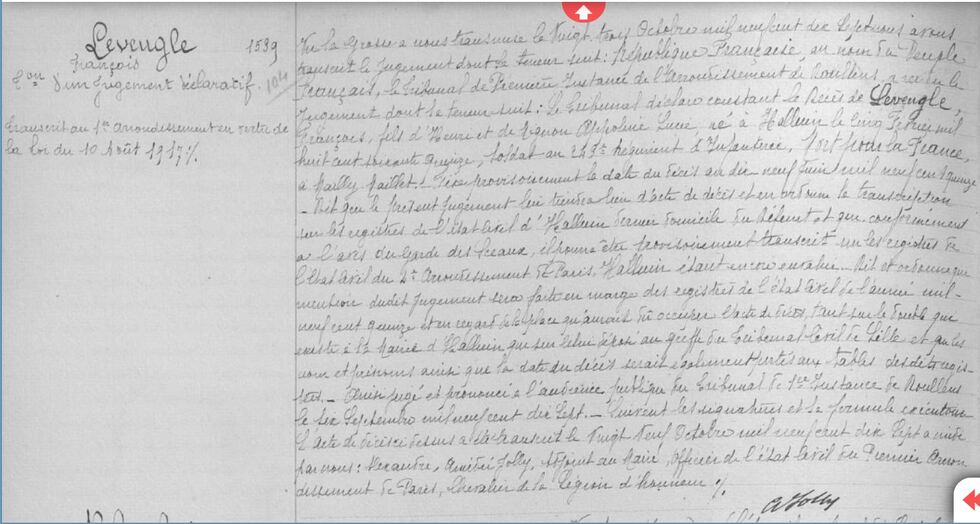 Levengle 1539
François
Ton d'un jugement déclaratif. 104
transcrit au 1er arrondissement en vertu de
la loi du 10 Août 1917 ./.
Vu la Grosse a nous transmise le Vingt trois Octobre mil neuf cent dix Sept nous avons
transcrit le Jugement dont la teneur suit : République Française, au nom du Peuple
Français, le Tribunal de Première Instance de l'Arrondissement de Doullens, a rendu le
Jugement dont la teneur suit : Le Tribunal déclare constant le Décès de Levengle,
François, fils d'Henri et de Mignon Appoline Lucie, né à Halluin le Cinq Février mil
huit cent soixante quinze, Soldat au 243e Régiment d'Infanterie, Mort pour la France,
à Mailly-Maillet. - Fixe provisoirement la date du décès au dix-neuf Juin mil neuf cent quinze
- Dit que le présent Jugement lui tiendra lieu d'acte de décès et en ordonne la transcription
sur les registres de l'état Civil d'Halluin dernier domicile du Défunt et que conformément
à l'avis du Garde des Sceaux, il pourra être provisoirement transcrit sur les registres de
l'Etat Civil du 1er Arrondissement de Paris, Halluin étant encore envahie. - Dit et ordonne que
mention dudit Jugement sera faite en marge des registres de l'état Civil de l'année mil-
neuf cent quinze et en regard de la place qu'aurait dû occuper l'acte de décès, tant sur le double qui
existe à la Mairie d'Halluin que sur celui déposé au greffe du Tribunal Civil de Lille et que les
nom et prénoms ainsi que la date du décès seraient également portés aux tables desdits regis-
tres. - Ainsi jugé et prononcé à l'audience publique du Tribunal de 1ere Instance de Doullens
le six Septembre mil neuf cent dix Sept. - Suivent les signatures et la formule exécutoire
L'acte de décès ci dessus a été transcrit le Vingt Neuf Octobre mil neuf cent dix Sept à midi
par nous : Alexandre, Amédée Jolly, adjoint au Maire, officier de l'état Civil du Premier Arron
dissement de Paris, Chevalier de la Légion d'honneur ./.
A Jolly